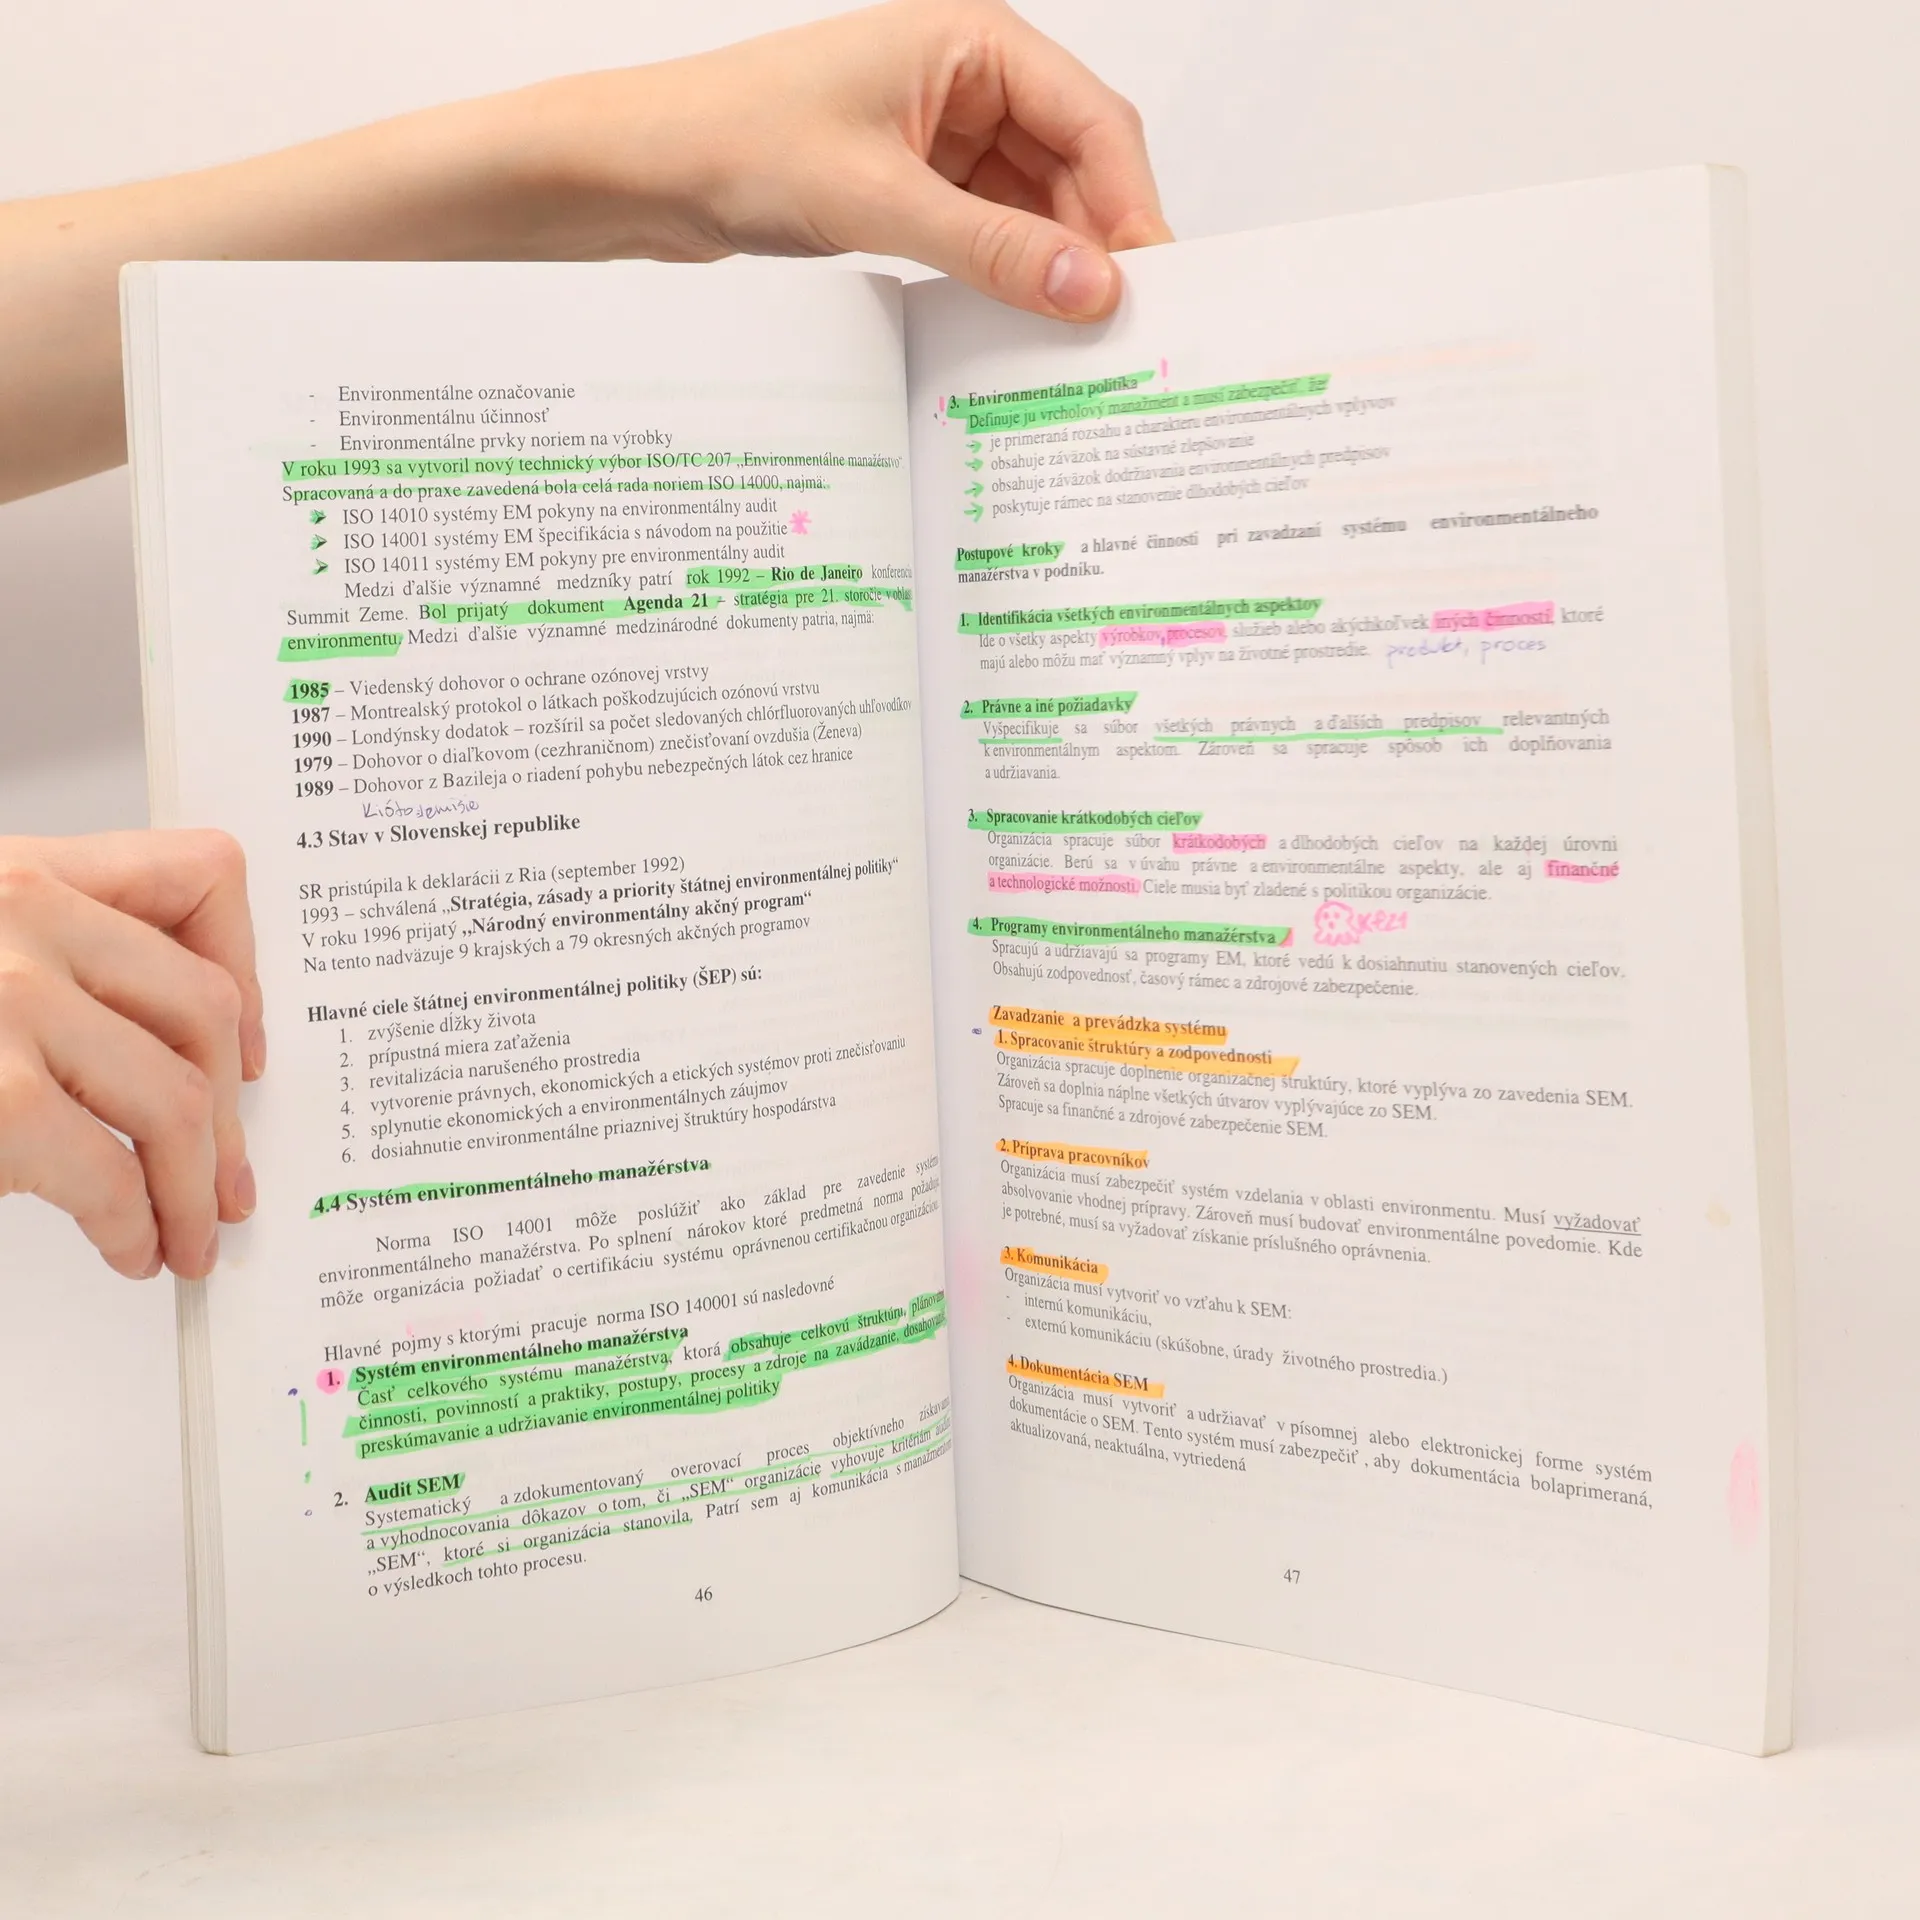 - Environmentálne označovanie
- Environmentálnu účinnosť
- Environmentálne prvky noriem na výrobky
V roku 1993 sa vytvoril nový technický výbor ISO/TC 207 „Environmentálne manažérstvo“
Spracovaná a do praxe zavedená bola celá rada noriem ISO 14000, najmä:
➢ ISO 14010 systémy EM pokyny na environmentálny audit
➢ ISO 14001 systémy EM špecifikácia s návodom na použitie
➢ ISO 14011 systémy EM pokyny pre environmentálny audit
Medzi ďalšie významné medzníky patrí rok 1992 – Rio de Janeiro konferencia
Summit Zeme. Bol prijatý dokument Agenda 21 – stratégia pre 21. storočie v oblas
environmentu. Medzi ďalšie významné medzinárodné dokumenty patria, najmä:
1985 – Viedenský dohovor o ochrane ozónovej vrstvy
1987 – Montrealský protokol o látkach poškodzujúcich ozónovú vrstvu
1990 – Londýnsky dodatok – rozšíril sa počet sledovaných chlórfluorovaných uhľovodíkov
1979 – Dohovor o diaľkovom (cezhraničnom) znečisťovaní ovzdušia (Ženeva)
1989 – Dohovor z Bazileja o riadení pohybu nebezpečných látok cez hranice
4.3 Stav v Slovenskej republike
SR pristúpila k deklarácii z Ria (september 1992)
1993 – schválená „Stratégia, zásady a priority štátnej environmentálnej politiky“
V roku 1996 prijatý „Národný environmentálny akčný program“
Na tento nadväzuje 9 krajských a 79 okresných akčných programov
Hlavné ciele štátnej environmentálnej politiky (ŠEP) sú:
1. zvýšenie dĺžky života
2. prípustná miera zaťaženia
3. revitalizácia narušeného prostredia
4. vytvorenie právnych, ekonomických a etických systémov proti znečisťovaniu
5. splynutie ekonomických a environmentálnych záujmov
6. dosiahnutie environmentálne priaznivej štruktúry hospodárstva
4.4 Systém environmentálneho manažérstva
Norma ISO 14001 môže poslúžiť ako základ pre zavedenie systému
environmentálneho manažérstva. Po splnení nárokov ktoré predmetná norma požaduje,
môže organizácia požiadať o certifikáciu systému oprávnenou certifikačnou organizáciou.
Hlavné pojmy s ktorými pracuje norma ISO 140001 sú nasledovné
1. Systém environmentálneho manažérstva
Časť celkového systému manažérstva, ktorá obsahuje celkovú štruktúru, plánovanie
činnosti, povinností a praktiky, postupy, procesy a zdroje na zavádzanie, dosahovanie,
preskúmavanie a udržiavanie environmentálnej politiky
2. Audit SEM
Systematický a zdokumentovaný overovací proces objektívneho získavania
a vyhodnocovania dôkazov o tom, či „SEM“ organizácie vyhovuje kritériám auditu
„SEM“, ktoré si organizácia stanovila. Patrí sem aj komunikácia s manažmentom
o výsledkoch tohto procesu.
46
3. Environmentálna politika
Definuje ju vrcholový manažment a musí zabezpečiť, že:
je primeraná rozsahu a charakteru environmentálnych vplyvov
obsahuje záväzok na sústavné zlepšovanie
obsahuje záväzok dodržiavania environmentálnych predpisov
poskytuje rámec na stanovenie dlhodobých cieľov
Postupové kroky a hlavné činnosti pri zavadzaní systému environmentálneho
manažérstva v podniku.
1. Identifikácia všetkých environmentálnych aspektov
Ide o všetky aspekty výrobkov, procesov, služieb alebo akýchkoľvek iných činností, ktoré
majú alebo môžu mať významný vplyv na životné prostredie. produkt, proces
2. Právne a iné požiadavky
Vyšpecifikuje sa súbor všetkých právnych a ďalších predpisov relevantných
k environmentálnym aspektom. Zároveň sa spracuje spôsob ich doplňovania
a udržiavania.
3. Spracovanie krátkodobých cieľov
Organizácia spracuje súbor krátkodobých a dlhodobých cieľov na každej úrovni
organizácie. Berú sa v úvahu právne a environmentálne aspekty, ale aj finančné
a technologické možnosti. Ciele musia byť zladené s politikou organizácie.
4. Programy environmentálneho manažérstva
Spracujú a udržiavajú sa programy EM, ktoré vedú k dosiahnutiu stanovených cieľov.
Obsahujú zodpovednosť, časový rámec a zdrojové zabezpečenie.
Zavadzanie a prevádzka systému
1. Spracovanie štruktúry a zodpovednosti
Organizácia spracuje doplnenie organizačnej štruktúry, ktoré vyplýva zo zavedenia SEM.
Zároveň sa doplnia náplne všetkých útvarov vyplývajúce zo SEM.
Spracuje sa finančné a zdrojové zabezpečenie SEM.
2. Príprava pracovníkov
Organizácia musí zabezpečiť systém vzdelania v oblasti environmentu. Musí vyžadovať
absolvovanie vhodnej prípravy. Zároveň musí budovať environmentálne povedomie. Kde
je potrebné, musí sa vyžadovať získanie príslušného oprávnenia.
3. Komunikácia
Organizácia musí vytvoriť vo vzťahu k SEM:
- internú komunikáciu,
- externú komunikáciu (skúšobne, úrady životného prostredia.)
4. Dokumentácia SEM
Organizácia musí vytvoriť a udržiavať v písomnej alebo elektronickej forme systém
dokumentácie o SEM. Tento systém musí zabezpečiť , aby dokumentácia bolaprimeraná,
aktualizovaná, neaktuálna, vytriedená
47